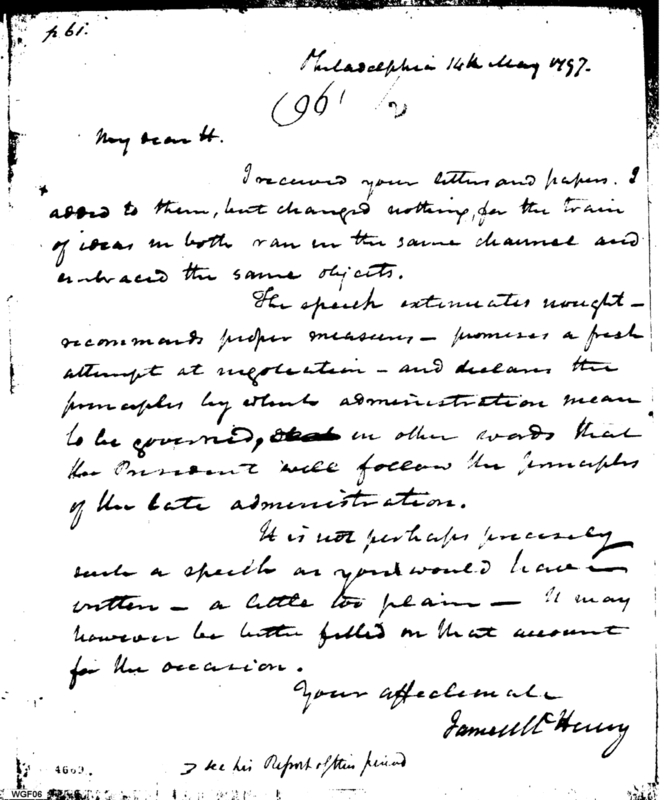 p. 61.
Philadelphia 14th May 1797.
My dear H.
I received your letters and papers. I
added to them, but changed nothing, for the train
of ideas in both ran in the same channel and
embraced the same objects.
The speech extenuates nought –
recommends proper measures – promises a fresh
attempt at negotiation – and declares the
principles by which administration mean
to be governed, in other words that
the President will follow the principles
of the late administration.
It is not perhaps precisely
such a speech as you would have
written – a little too plain – It may
however be better fitted on that account
for the occasion.
Your affectionate
James McHenry
see his Report of this period
4669.
WGF06